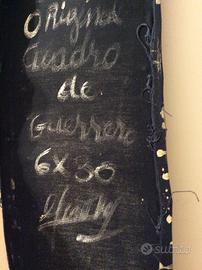 ORiginal
Cuadro
de
Guerrero
6x80
subito